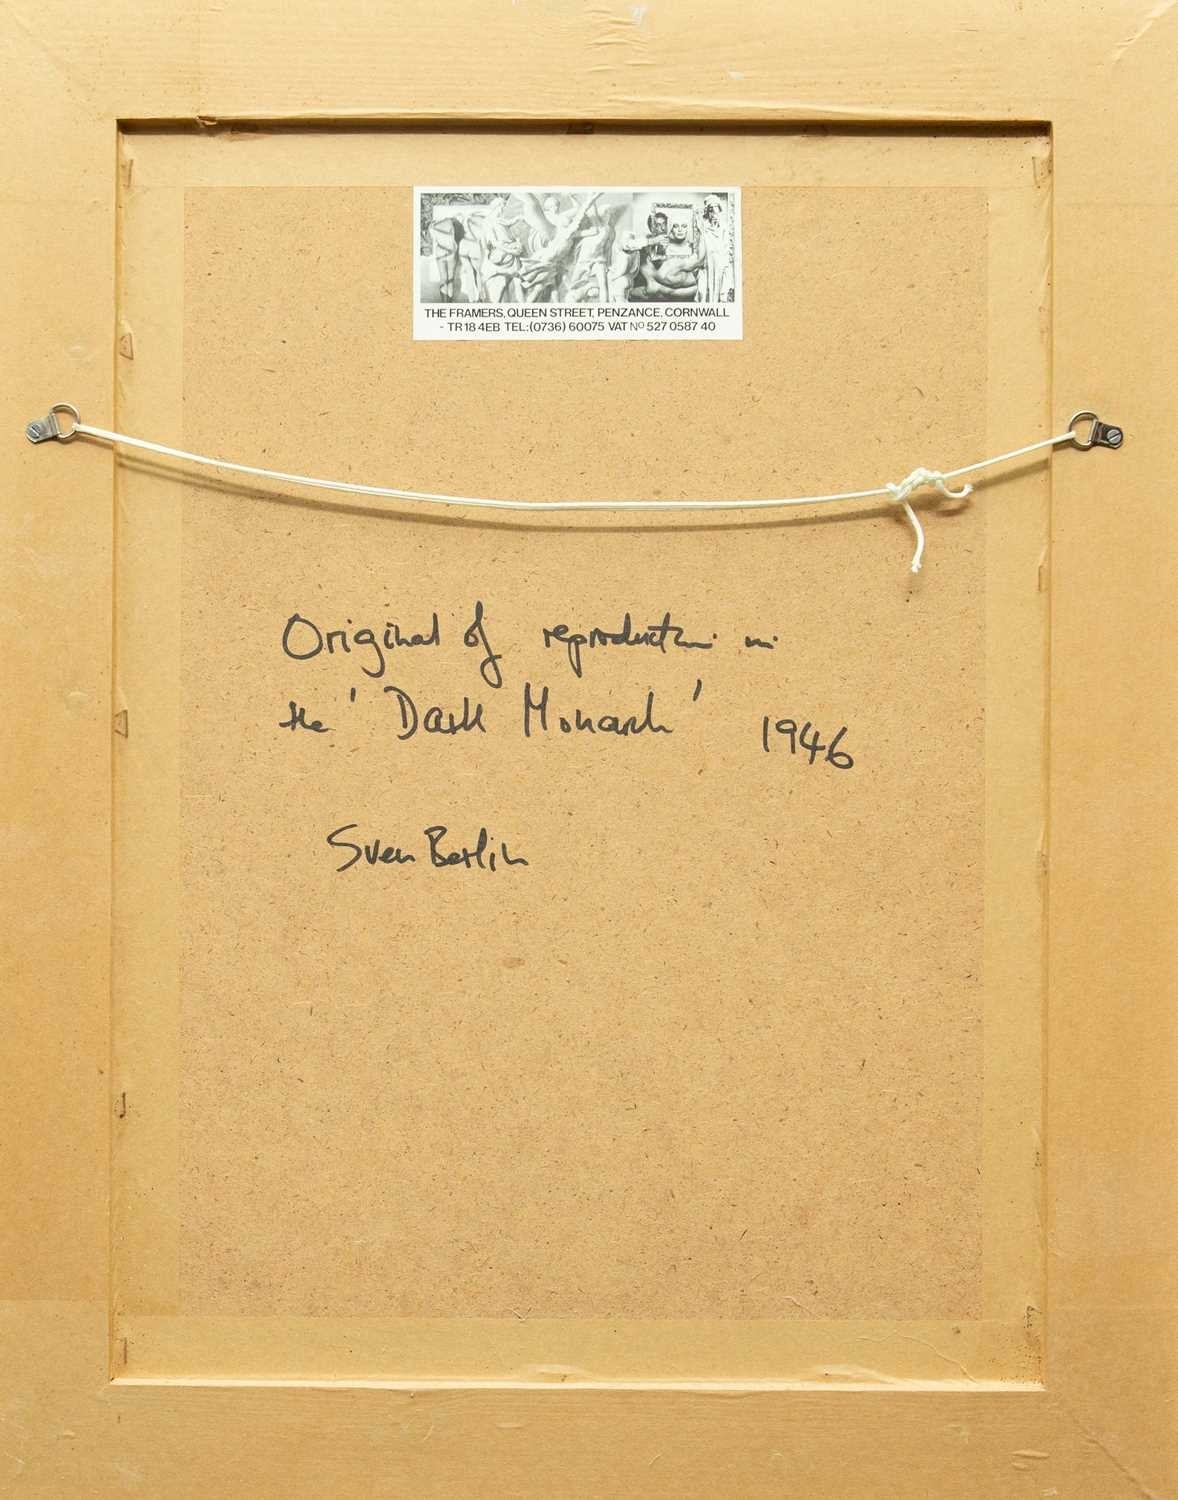 THE FRAMERS, QUEEN STREET, PENZANCE, CORNWALL
- TR18 4EB TEL:(0736) 60075 VAT No 527 0587 40
Original of reproduction in
the 'Dark Monarch' 1946
Sven Berlin